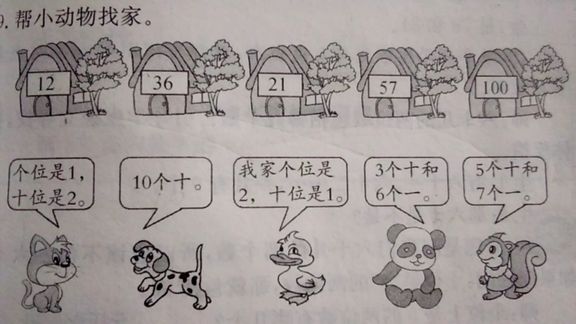 9.帮小动物找家。
12
36
21
57
100
个位是1,
十位是2。
10个十。
我家个位是
2,十位是1。
3个十和
6个一。
5个十和
7个一。